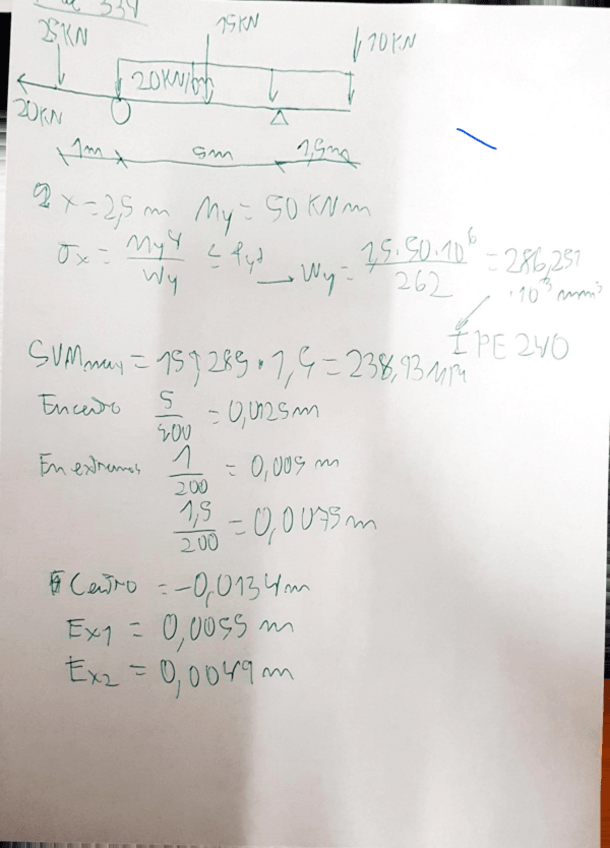 334
25KN 15KN 10KN
20KN/m
20KN
1m 5m 1,5m
x=2,5m My= 50KNm
σx = My·y / Wy ≤ fyd → Wy = 1,5·50·10⁶ / 262 = 286,251 ·10³ mm³
IPE 240
SVMmax = 159,285·1,5 = 238,93 MPa
En centro 5/400 = 0,0125m
En extremos 1/200 = 0,005 m
1,5/200 = 0,0075m
Centro = -0,0134m
Ex1 = 0,0055 m
Ex2 = 0,0049 m